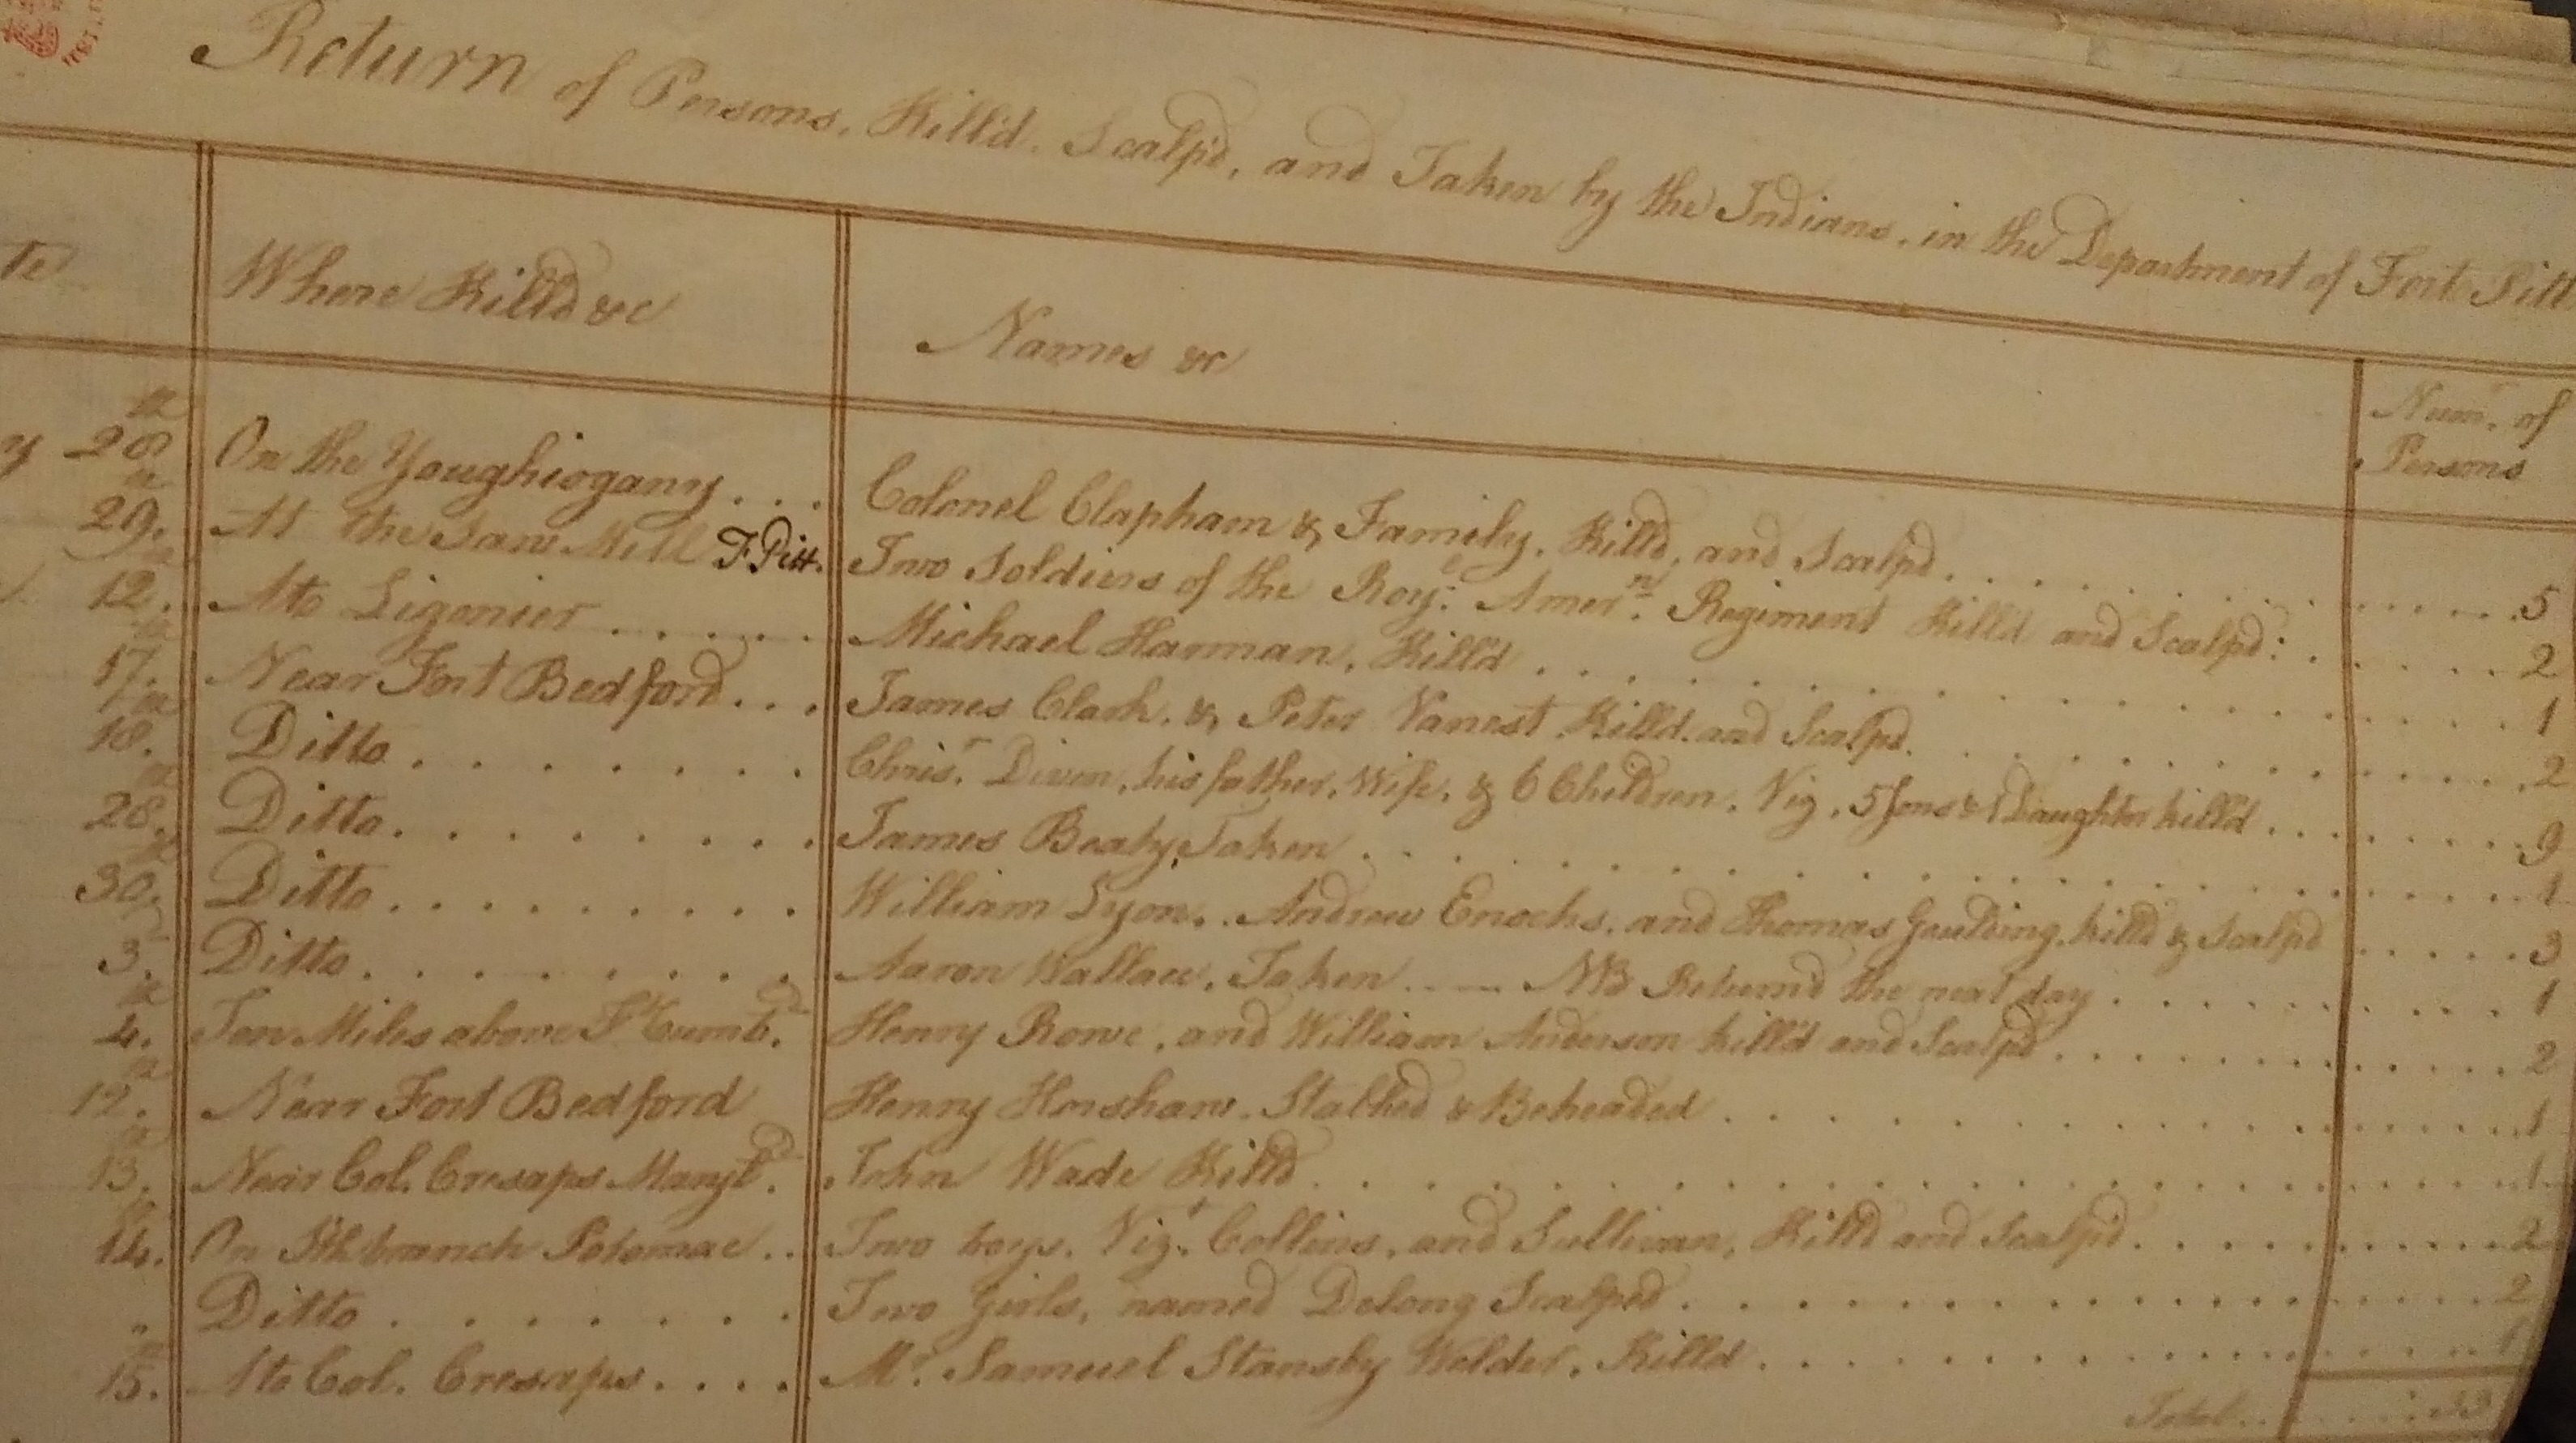 Return of Persons, Killd. Scalp'd, and Taken by the Indians, in the Department of Fort Pitt
te Where Killd &c Names &c Num.r of Persons
y 28th On the Youghiogany . . . Colonel Clapham & Family, Killd, and Scalpd . . . 5
29.th At the Saw Mill F. Pitt. Two Soldiers of the Roy:l Amer:n Regiment Killd and Scalpd: . . . 2
12.th At Ligonier . . . Michael Harman, Kill'd . . . 1
17.th Near Fort Bedford . . . James Clark, & Peter Vanest Killd. and Scalpd. . . . 2
18.th Ditto . . . Chris.r Diven, his father, Wife, & 6 Children. Viz. 5 Sons & 1 Daughter killd . . . 9
28.th Ditto . . . James Beaty, Taken . . . 1
30.th Ditto . . . William Lyon, Andrew Enochs, and Thomas Gaulding, killd & Scalpd . . . 3
3.d Ditto . . . Aaron Wallace, Taken . . . NB Return'd the next day . . . 1
4.th Ten Miles above Ft Cumb.d Henry Rowe, and William Anderson kill'd and Scalpd . . . 2
12.th Near Fort Bedford Henry Horshaw. Stabbed & Beheaded . . . 1
13.th Near Col. Cresaps Maryl.d John Wade Killd . . . 1
14.th On Sth branch Potomac . . Two boys. Viz.t Collins, and Sullivan, Killd and Scalp'd . . . 2
" Ditto . . . Two Girls, named Delong Scalped . . . 2
15.th At Col. Cresaps . . . . Mr. Samuel Stansby Welder. Killd . . . 1
Total . . . 33